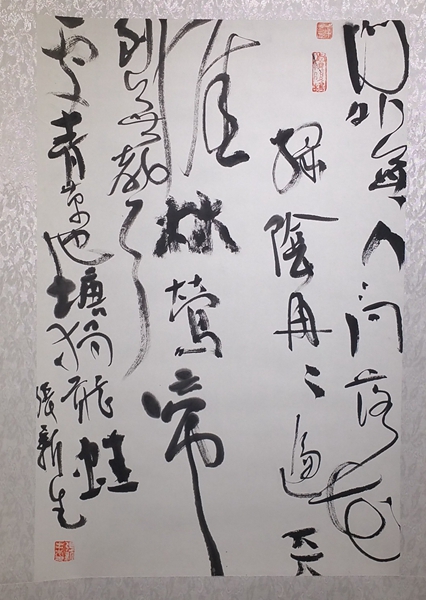 門外無人问落花
綠陰冉〻遍天
涯林鶯啼
到無聲
處青草池塘獨聽蛙
張新生